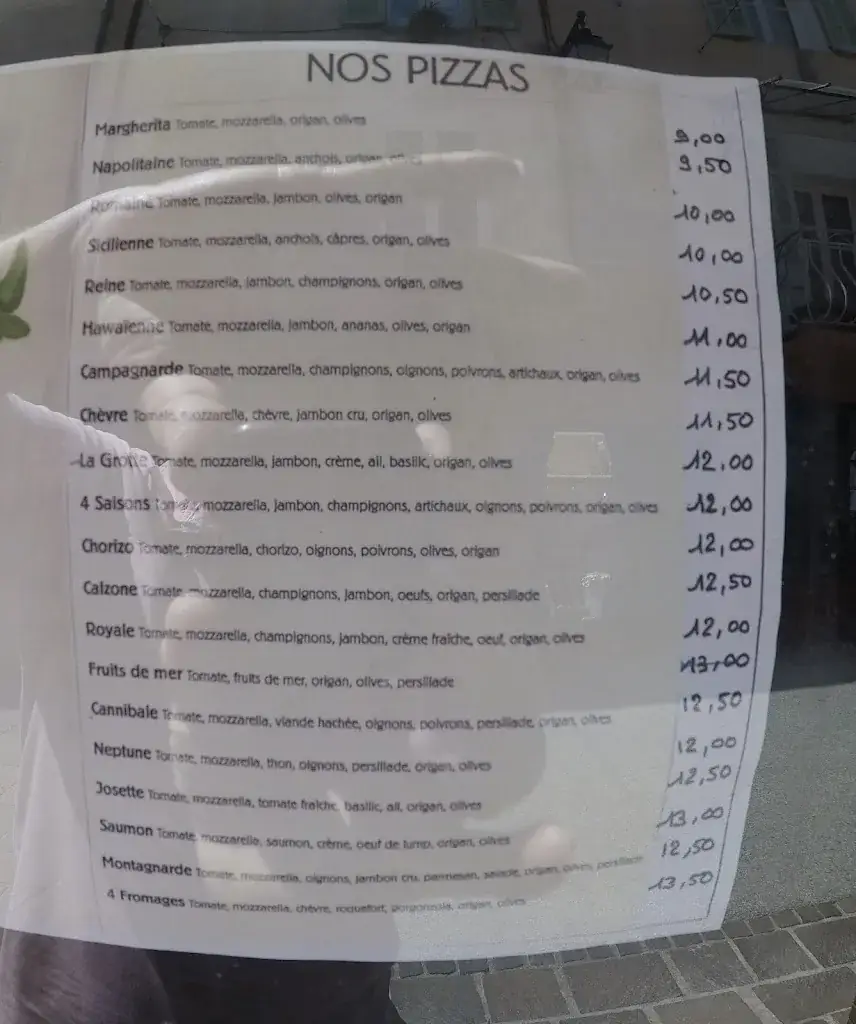 NOS PIZZAS
Margherita Tomate, mozzarella, origan, olives 9,00
Napolitaine Tomate, mozzarella, anchois, origan, olives 9,50
Romaine Tomate, mozzarella, jambon, olives, origan 10,00
Sicilienne Tomate, mozzarella, anchois, câpres, origan, olives 10,00
Reine Tomate, mozzarella, jambon, champignons, origan, olives 10,50
Hawaïenne Tomate, mozzarella, jambon, ananas, olives, origan 11,00
Campagnarde Tomate, mozzarella, champignons, oignons, poivrons, artichaux, origan, olives 11,50
Chèvre Tomate, mozzarella, chèvre, jambon cru, origan, olives 11,50
La Grotte Tomate, mozzarella, jambon, crème, ail, basilic, origan, olives 12,00
4 Saisons Tomate, mozzarella, jambon, champignons, artichaux, oignons, poivrons, origan, olives 12,00
Chorizo Tomate, mozzarella, chorizo, oignons, poivrons, olives, origan 12,00
Calzone Tomate, mozzarella, champignons, jambon, oeufs, origan, persillade 12,50
Royale Tomate, mozzarella, champignons, jambon, crème fraîche, oeuf, origan, olives 12,00
Fruits de mer Tomate, fruits de mer, origan, olives, persillade 13,00
Cannibale Tomate, mozzarella, viande hachée, oignons, poivrons, persillade, origan, olives 12,50
Neptune Tomate, mozzarella, thon, oignons, persillade, origan, olives 12,00
Josette Tomate, mozzarella, tomate fraîche, basilic, ail, origan, olives 12,50
Saumon Tomate, mozzarella, saumon, crème, oeuf de lump, origan, olives 13,00
Montagnarde Tomate, mozzarella, oignons, jambon cru, parmesan, salade, origan, olives, persillade 12,50
4 Fromages Tomate, mozzarella, chèvre, roquefort, gorgonzola, origan, olives 13,50